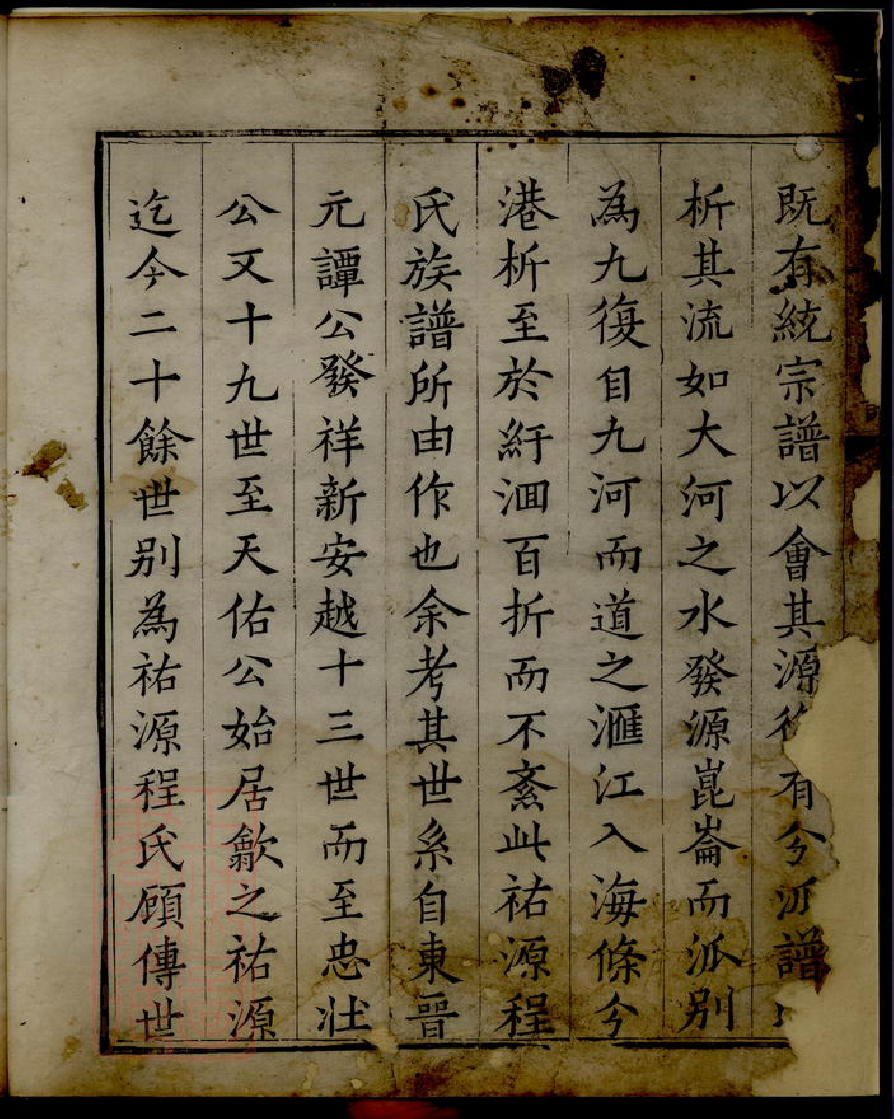 既有統宗譜以會其源有分派譜
析其流如大河之水發源崑崙而派別
為九復自九河而道之滙江入海條分
港析至於紆洄百折而不紊此祐源程
氏族譜所由作也余考其世系自東晉
元譚公發祥新安越十三世而至忠壯
公又十九世至天佑公始居歙之祐源
迄今二十餘世別為祐源程氏顧傳世